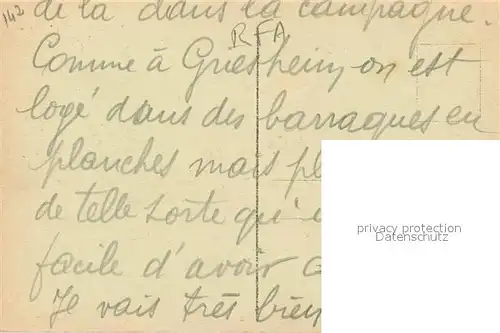 142
de la dans la campagne.
RFA
Comme à Griesheim, on est
logé dans des barraques en
planches mais pl
de telle sorte qu'i
privacy protection
Datenschutz
facile d'avoir
Je vais très bien